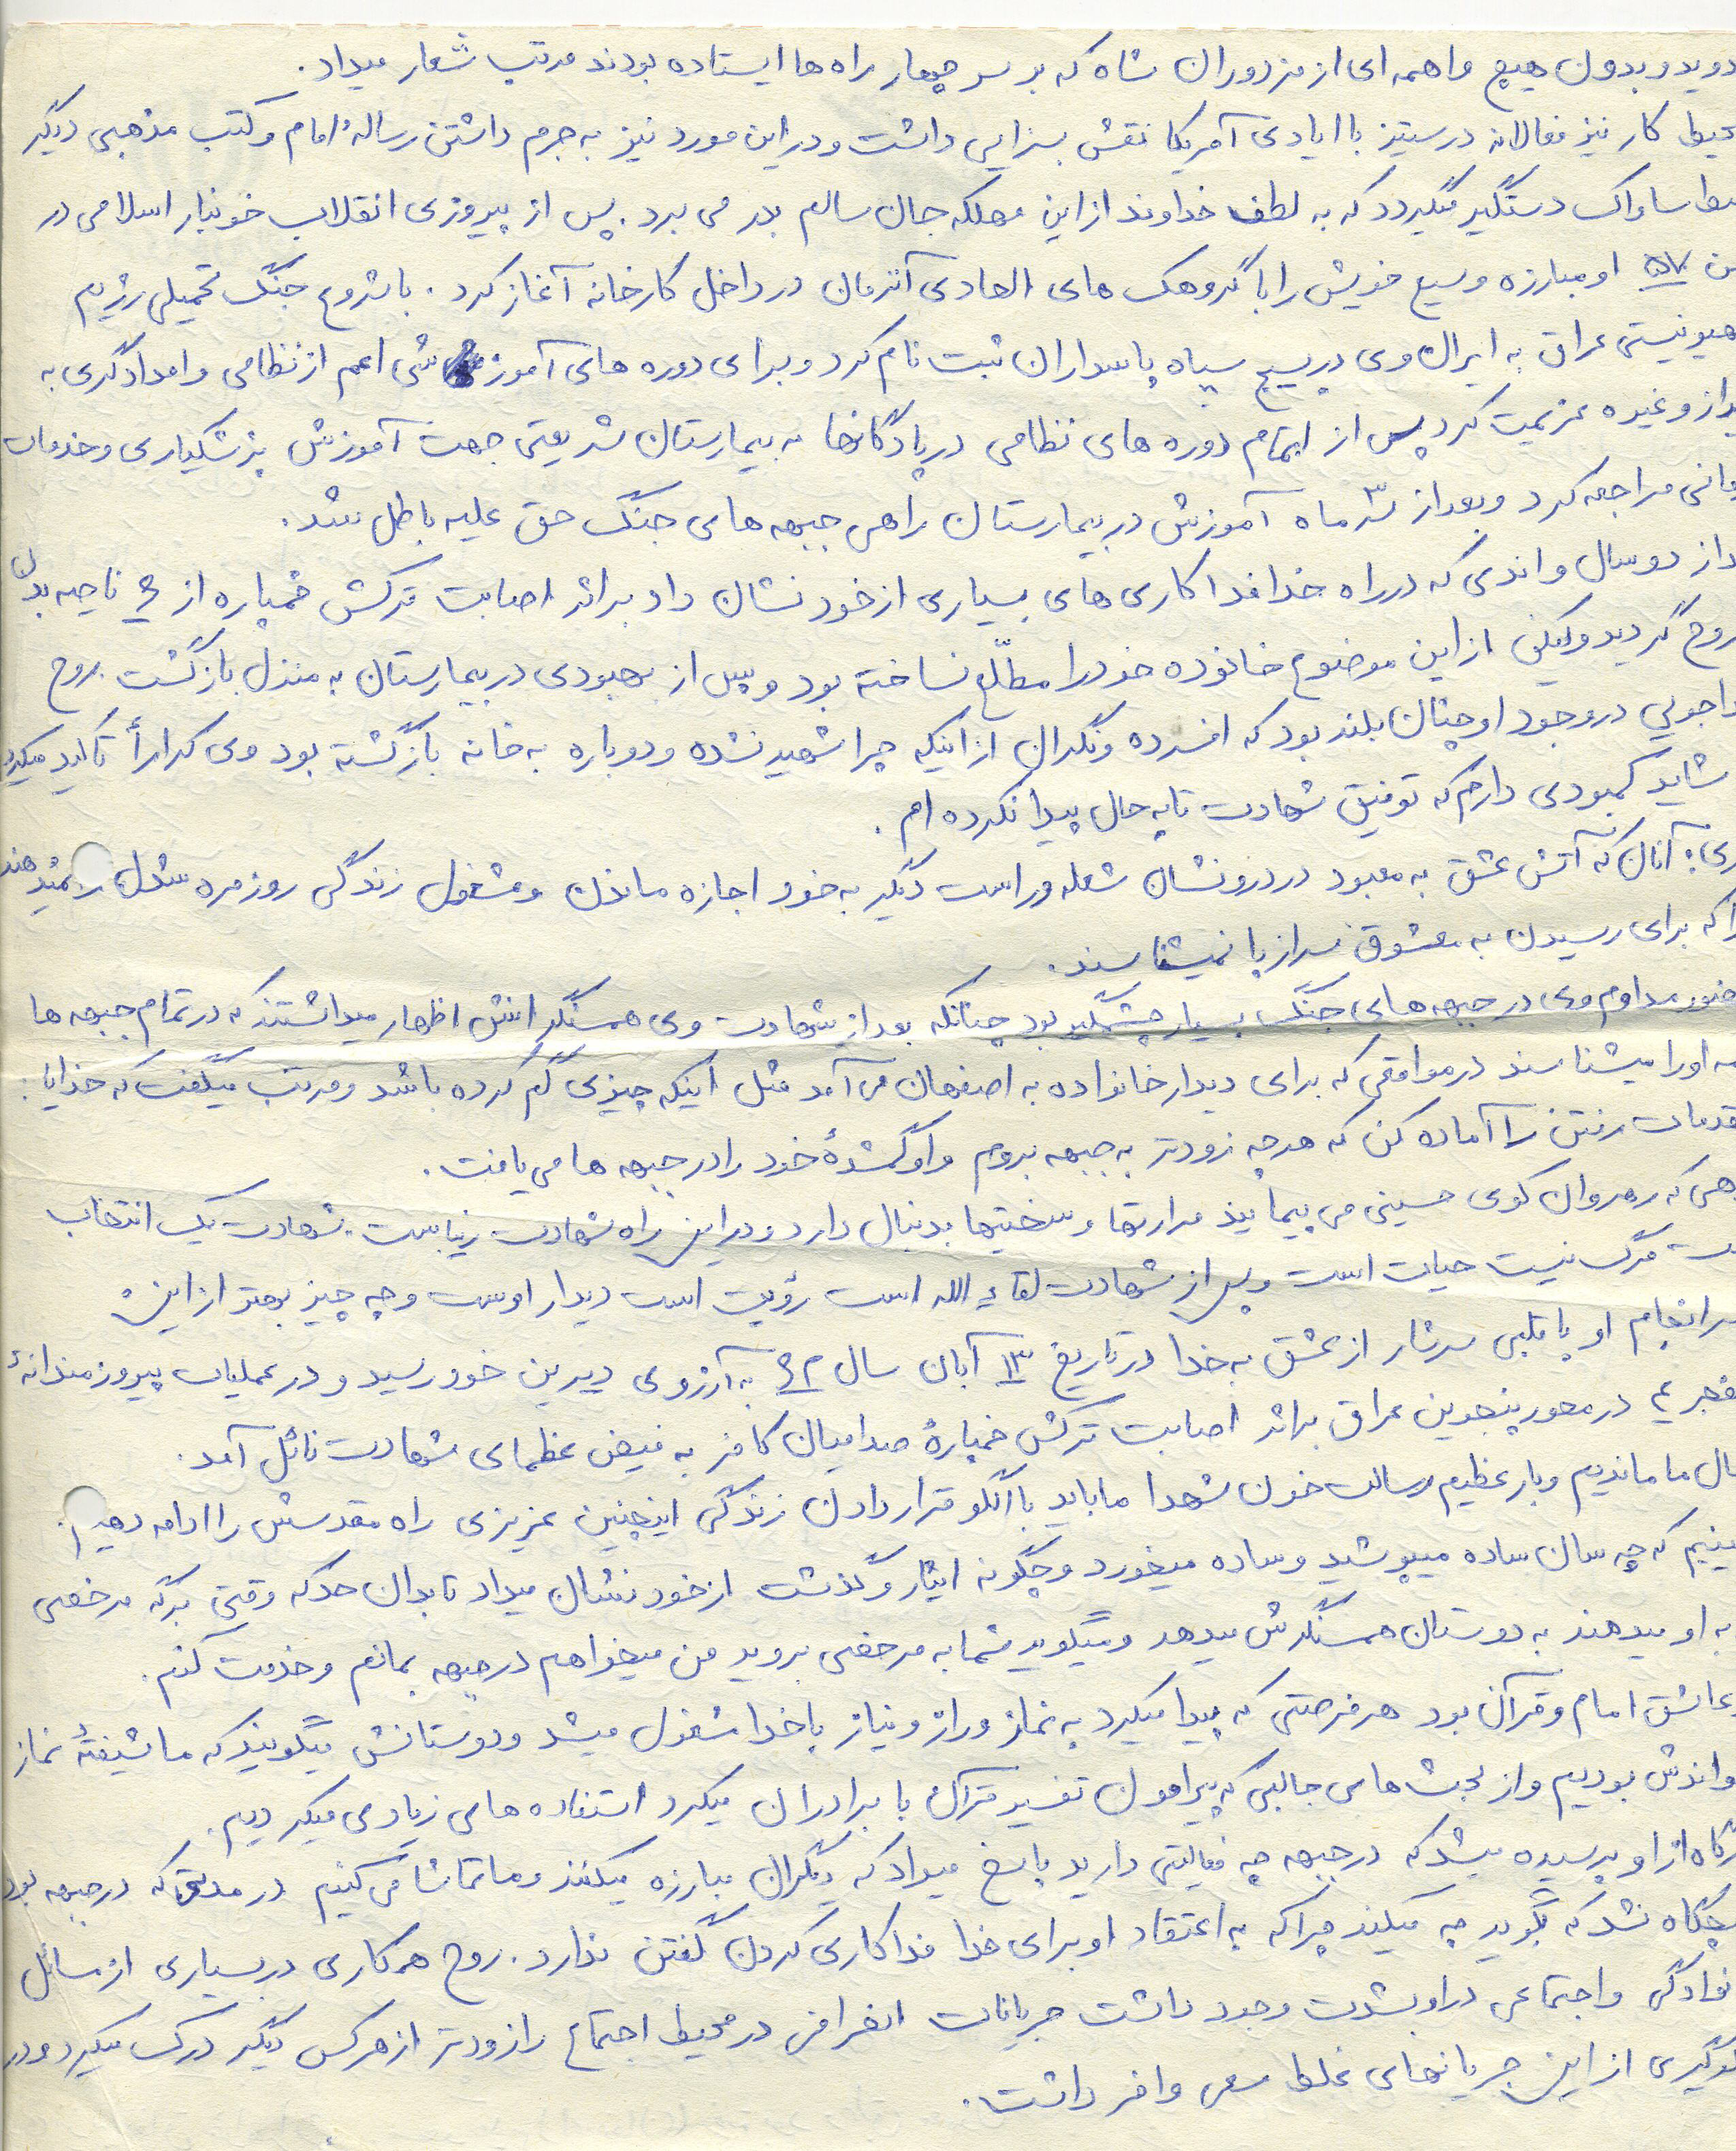 دوید و بدون هیچ واهمه ای از مزدوران شاه که بر سر چهار راه ها ایستاده بودند مرتب شعار میداد.
حیط کار نیز فعالانه در ستیز با ایادی آمریکا نقش بسزایی داشت و در این مورد نیز به جرم داشتن رسالهٔ امام و کتب مذهبی دیگر
سط ساواک دستگیر میگردد که به لطف خداوند از این مهلکه جان سالم بدر می برد. پس از پیروزی انقلاب خونبار اسلامی در
من ۵۷ او مبارزه وسیع خویش را با گروهک های الحادی آنزمان در داخل کارخانه آغاز کرد. با شروع جنگ تحمیلی رژیم
هیونیستی عراق به ایران وی در بسیج سپاه پاسداران ثبت نام کرد و برای دوره های آموزشی اعم از نظامی و امدادگری به
یراز و غیره عزیمت کرد پس از اتمام دوره های نظامی در پادگانها به بیمارستان شریعتی جهت آموزش پزشکیاری و خدمات
مانی مراجعه کرد و بعد از ۳ ماه آموزش در بیمارستان راهی جبهه های جنگ حق علیه باطل شد.
داز دو سال و اندی که در راه خدا فداکاری های بسیاری از خود نشان داد بر اثر اصابت ترکش خمپاره از ۶ ناحیه بدن
روح گردید ولیکن از این موضوع خانوده خود را مطلّع نساخته بود و پس از بهبودی در بیمارستان به منزل بازگشت. روح
اجویی در وجود او چنان بلند بود که افسرده و نگران از اینکه چرا شهید نشده و دوباره به خانه بازگشته بود وی کراراً تاکید میکرد
شاید کمبودی دارم که توفیق شهادت تا به حال پیدا نکرده ام.
ری؛ آنان که آتش عشق به معبود در درونشان شعله ور است دیگر به خود اجازه ماندن و مشغول زندگی روزمره شدن را نمیدهند
را که برای رسیدن به معشوق سر از پا نمیشناسند.
ضور مداوم وی در جبهه های جنگ بسیار چشمگیر بود چنانکه بعد از شهادت وی همسنگرانش اظهار میداشتند که در تمام جبهه ها
مه او را میشناسند در مواقعی که برای دیدار خانواده به اصفهان می آمد مثل اینکه چیزی گم کرده باشد و مرتب میگفت که خدایا:
قدمات رفتن را آماده کن که هر چه زودتر به جبهه بروم و او گمشدهٔ خود را در جبهه ها می یافت.
هی که رهروان کوی حسینی می پیمایند مرارتها و سختیها بدنبال دارد و در این راه شهادت زیباست. شهادت یک انتخاب
ست مرگ نیست حیات است و پس از شهادت لقاء الله است رؤیت است دیدار اوست و چه چیز بهتر از این؟
سرانجام او با قلبی سرشار از عشق به خدا در تاریخ ۱۳ آبان سال ۶۲ به آرزوی دیرین خود رسید و در عملیات پیروزمندانهٔ
فجر ۴ در محور پنجوین عراق بر اثر اصابت ترکش خمپارهٔ صدامیان کافر به فیض عظمای شهادت نائل آمد.
حال ما ماندیم و بار عظیم رسالت خون شهدا ما باید با الگو قرار دادن زندگی اینچنین عزیزی راه مقدسش را ادامه دهیم.
بینیم که چه سان ساده میپوشید و ساده میخورد و چگونه ایثار و گذشت از خود نشان میداد تا بدان حد که وقتی برگه مرخصی
به او میدهند به دوستان همسنگرش میدهد و میگوید شما به مرخصی بروید من میخواهم در جبهه بمانم و خدمت کنم.
عاشق امام و قرآن بود هر فرصتی که پیدا میکرد به نماز و راز و نیاز با خدا مشغول میشد و دوستانش میگویند که ما شیفتهٔ نماز
واندش بودیم و از بحث های جالبی که پیرامون تفسیر قرآن با برادران میکرد استفاده های زیادی میکردیم.
رگاه از او پرسیده میشد که در جبهه چه فعالیتی دارید پاسخ میداد که دیگران مبارزه میکنند و ما تماشا می کنیم در مدتی که در جبهه بود
یچگاه نشد که بگوید چه میکند چرا که به اعتقاد او برای خدا فداکاری کردن گفتن ندارد. روح همکاری در بسیاری از مسائل
نوادگی و اجتماعی در او بشدت وجود داشت جریانات انحرافی در محیط اجتماع را زودتر از هر کس دیگر درک میکرد و در
لوگیری از این جریانهای غلط سعی وافر داشت.